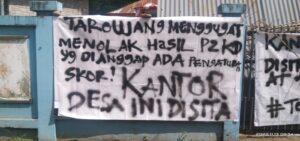 TAROWANG MENGGUGAT
MENOLAK HASIL P2KD
YG DIANGGAP ADA PENGATURAN
SKOR.! KANTOR
DESA INI DISITA
KANT
DISITA
AT
#T